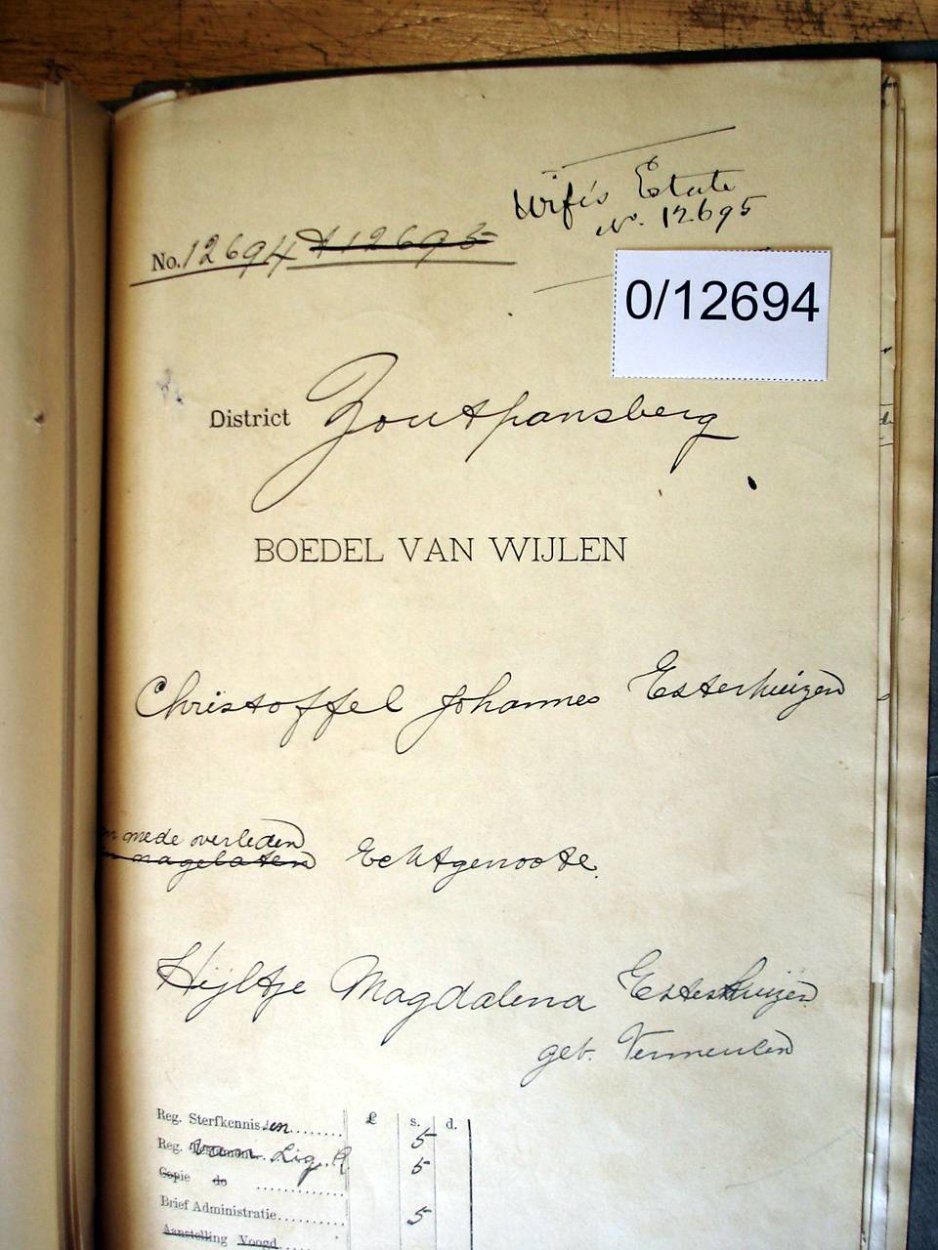 Wife's Estate
No. 12695
No. 12694 & 12695
0/12694
District Zoutpansberg
BOEDEL VAN WIJLEN
Christoffel Johannes Esterhuizen
mede overleden
nagelaten Echtgenoote.
Hijltje Magdalena Esterhuizen
geb. Vermeulen
£ s. d.
Reg. Sterfkennis.en........ 5
Reg. van Lig. 5
Copie do ............
Brief Administratie............ 5
Aanstelling Voogd....